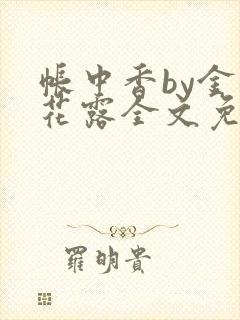 帳中香by金
花露全文免
羅明貴